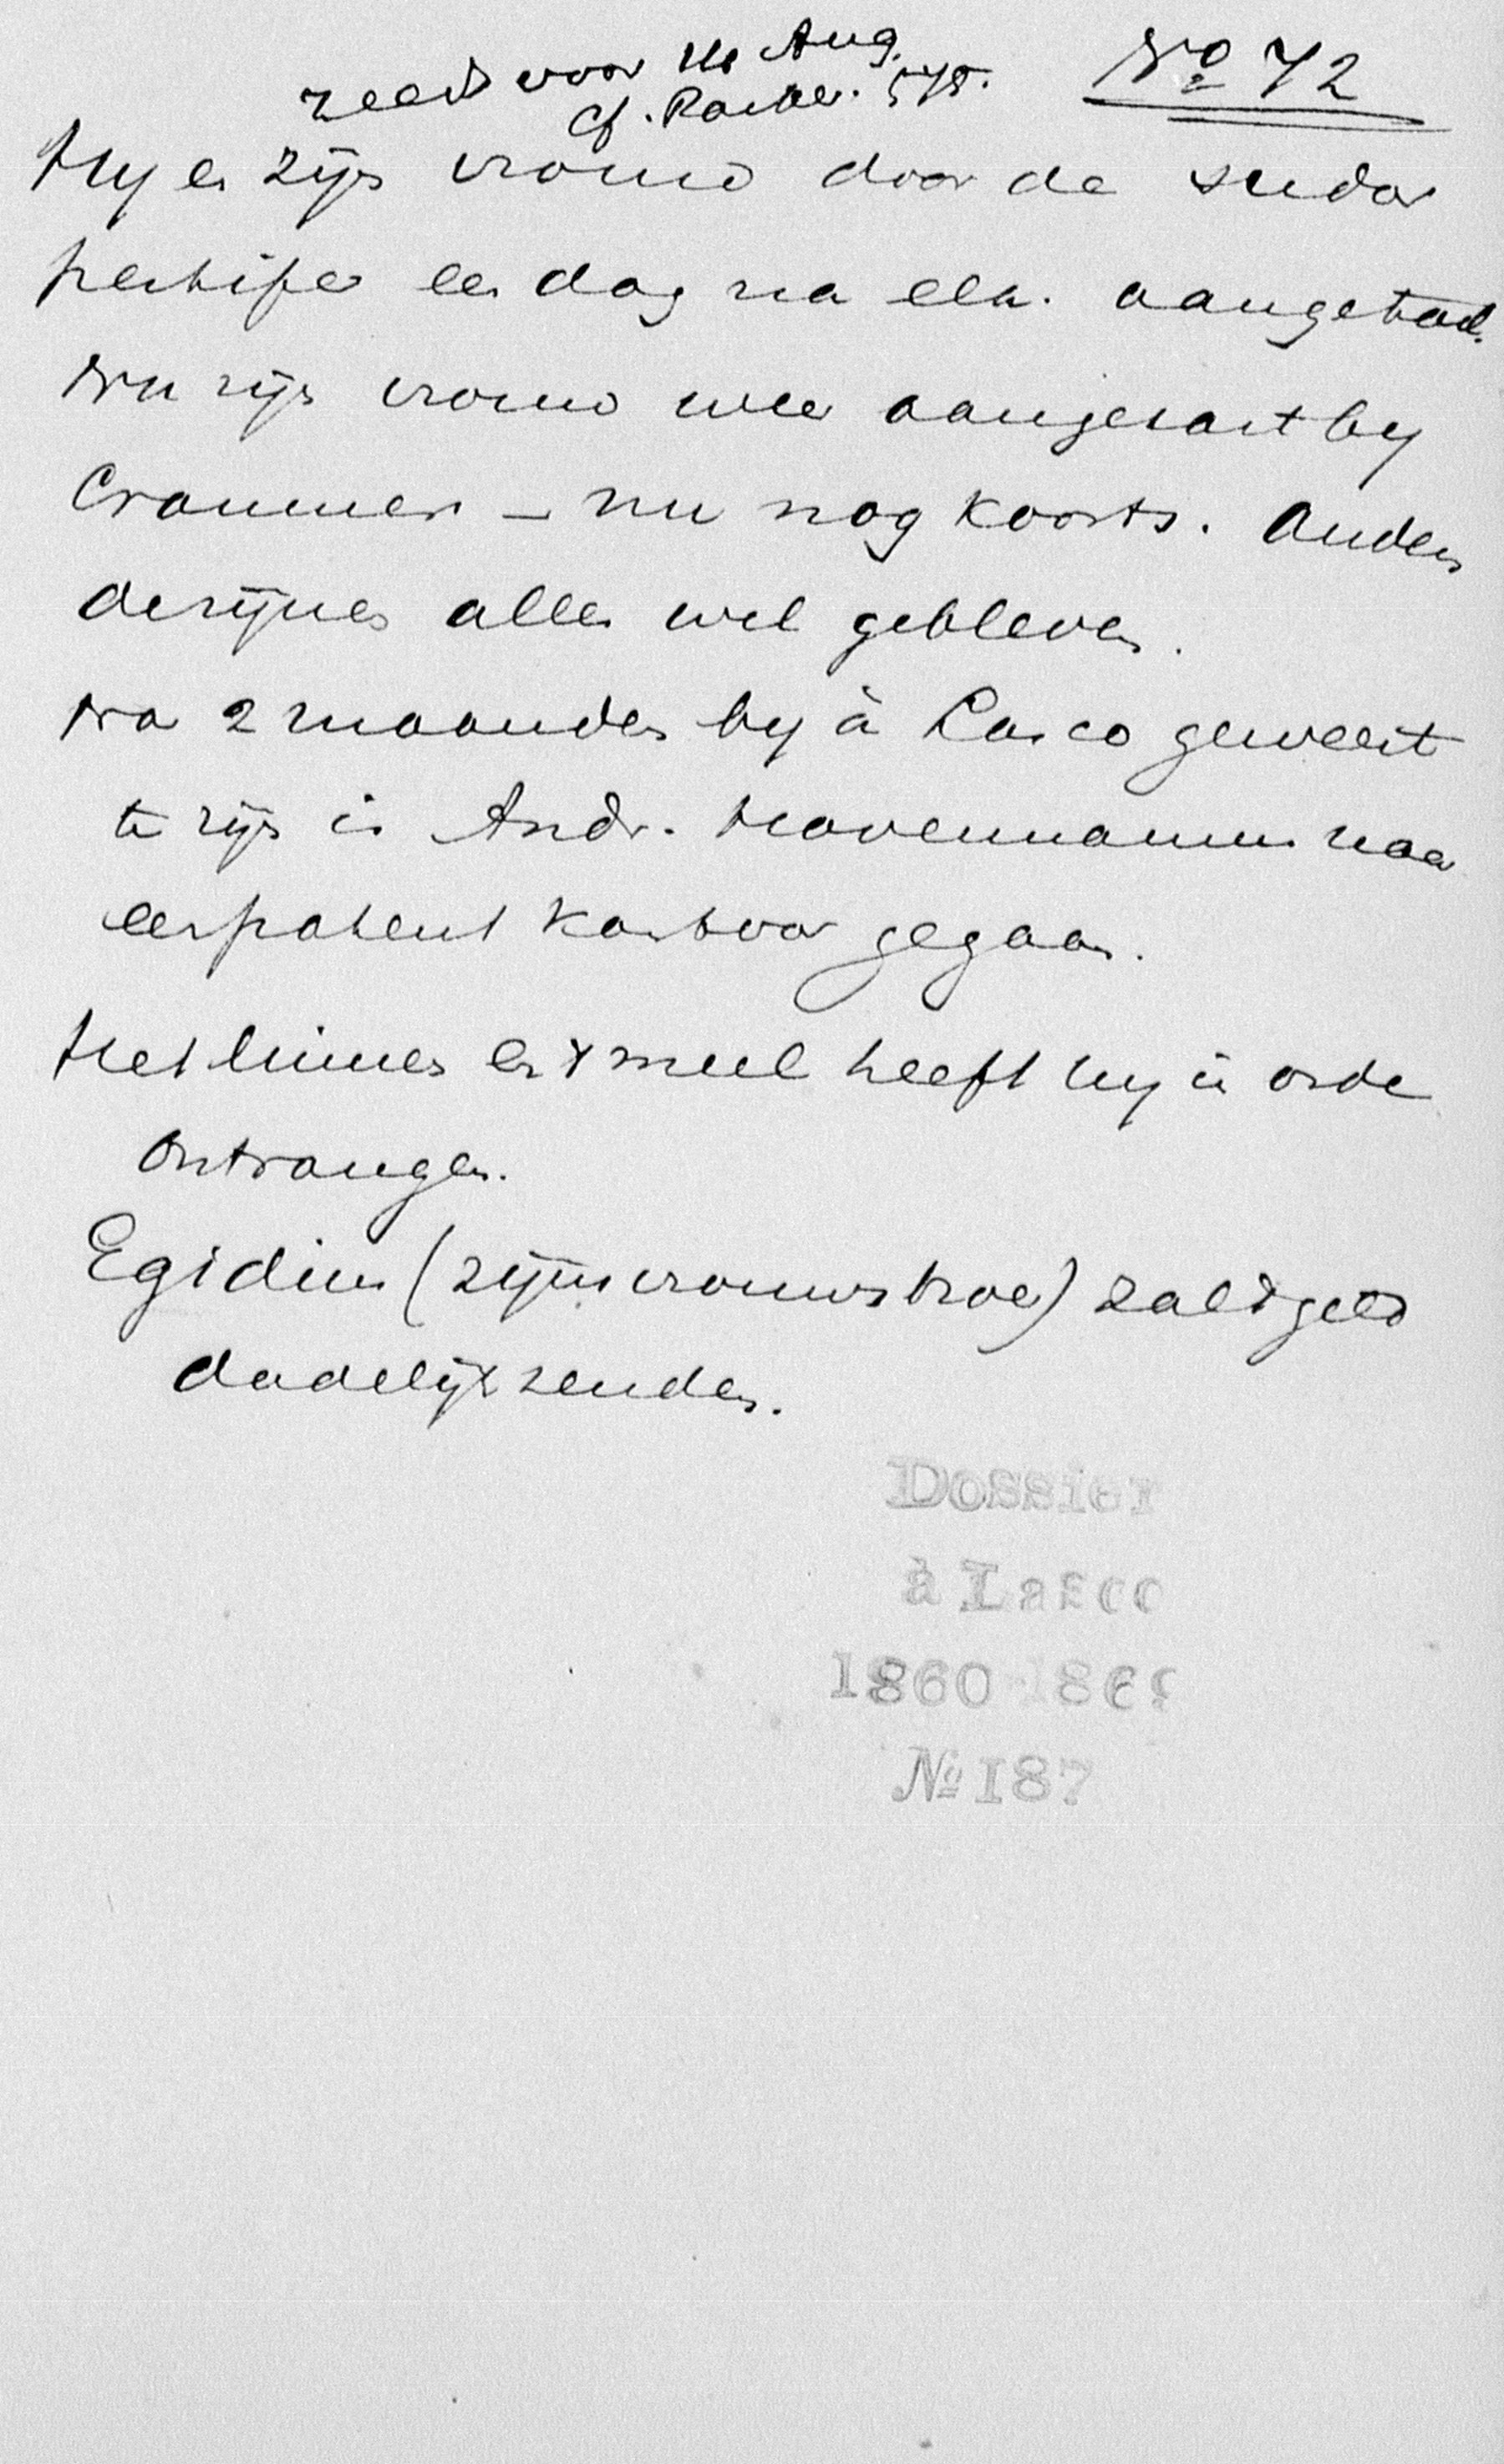 reeds voor 16 Aug. No 72
cf. Parker. 575.
Hy en zijn vrouw door de sudor
pestifer een dag na elk. aangetast.
Nu zijn vrouw weer aangetast by
Cranmer – nu nog koorts. Anders
de zijnen allen wel gebleven.
Na 2 maanden by à Lasco geweest
te zijn is Andr. naar
een patent kantoor gegaan.
Het linnen en 't meel heeft hy in orde
ontvangen.
Egidius (zijn vrouws broer) zal 't geld
dadelijk zenden.
Dossier
à Lasco
1860 186
No 187